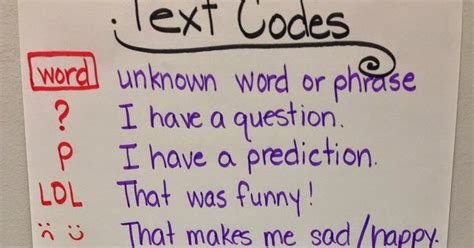 Text Codes
word unknown word or phrase
? I have a question.
P I have a prediction.
LOL That was funny!
:( :) That makes me sad/happy.